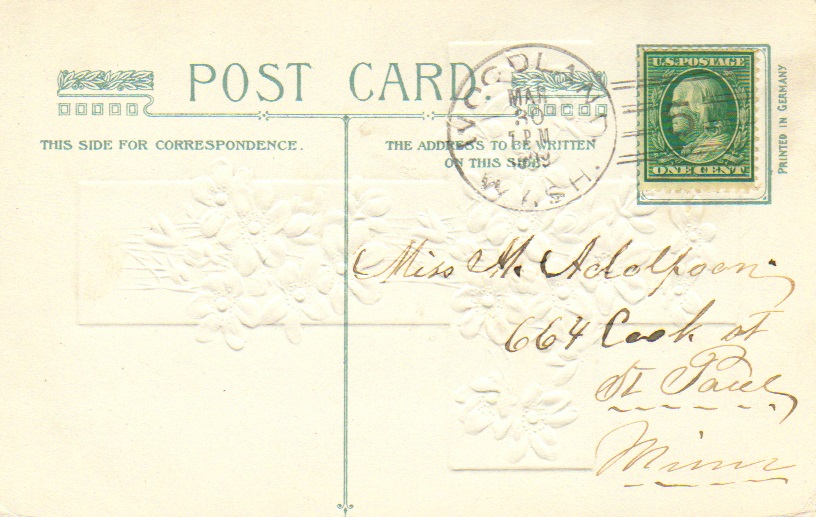 POST CARD
THIS SIDE FOR CORRESPONDENCE.
THE ADDRESS TO BE WRITTEN
ON THIS SIDE
WOODLAND, WASH.
MAR
30
1 PM
1909
U.S. POSTAGE
ONE CENT
PRINTED IN GERMANY
Miss M. Adolfson
664 Cook st
St Paul
Minn